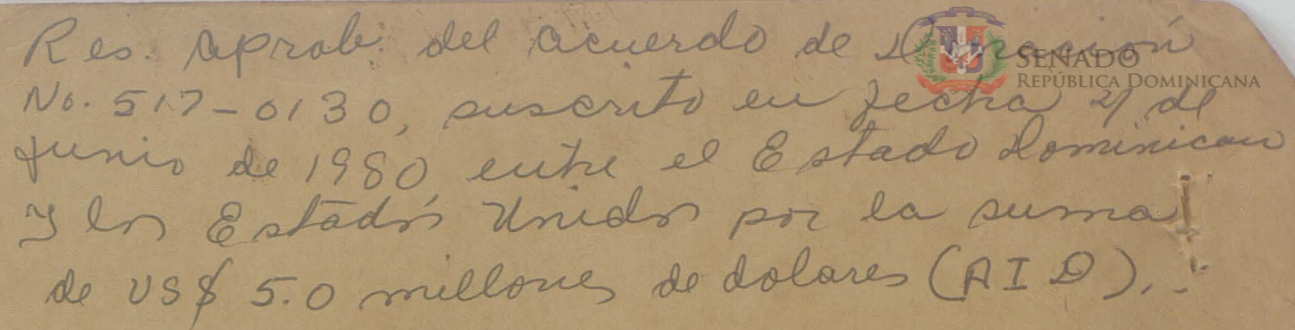 Res. aprob. del acuerdo de Donación
No. 517-0130, suscrito en fecha de
Junio de 1980 entre el Estado Dominicano
y los Estados Unidos por la suma
de US$ 5.0 millones de dolares (AID)..
SENADO
REPÚBLICA DOMINICANA